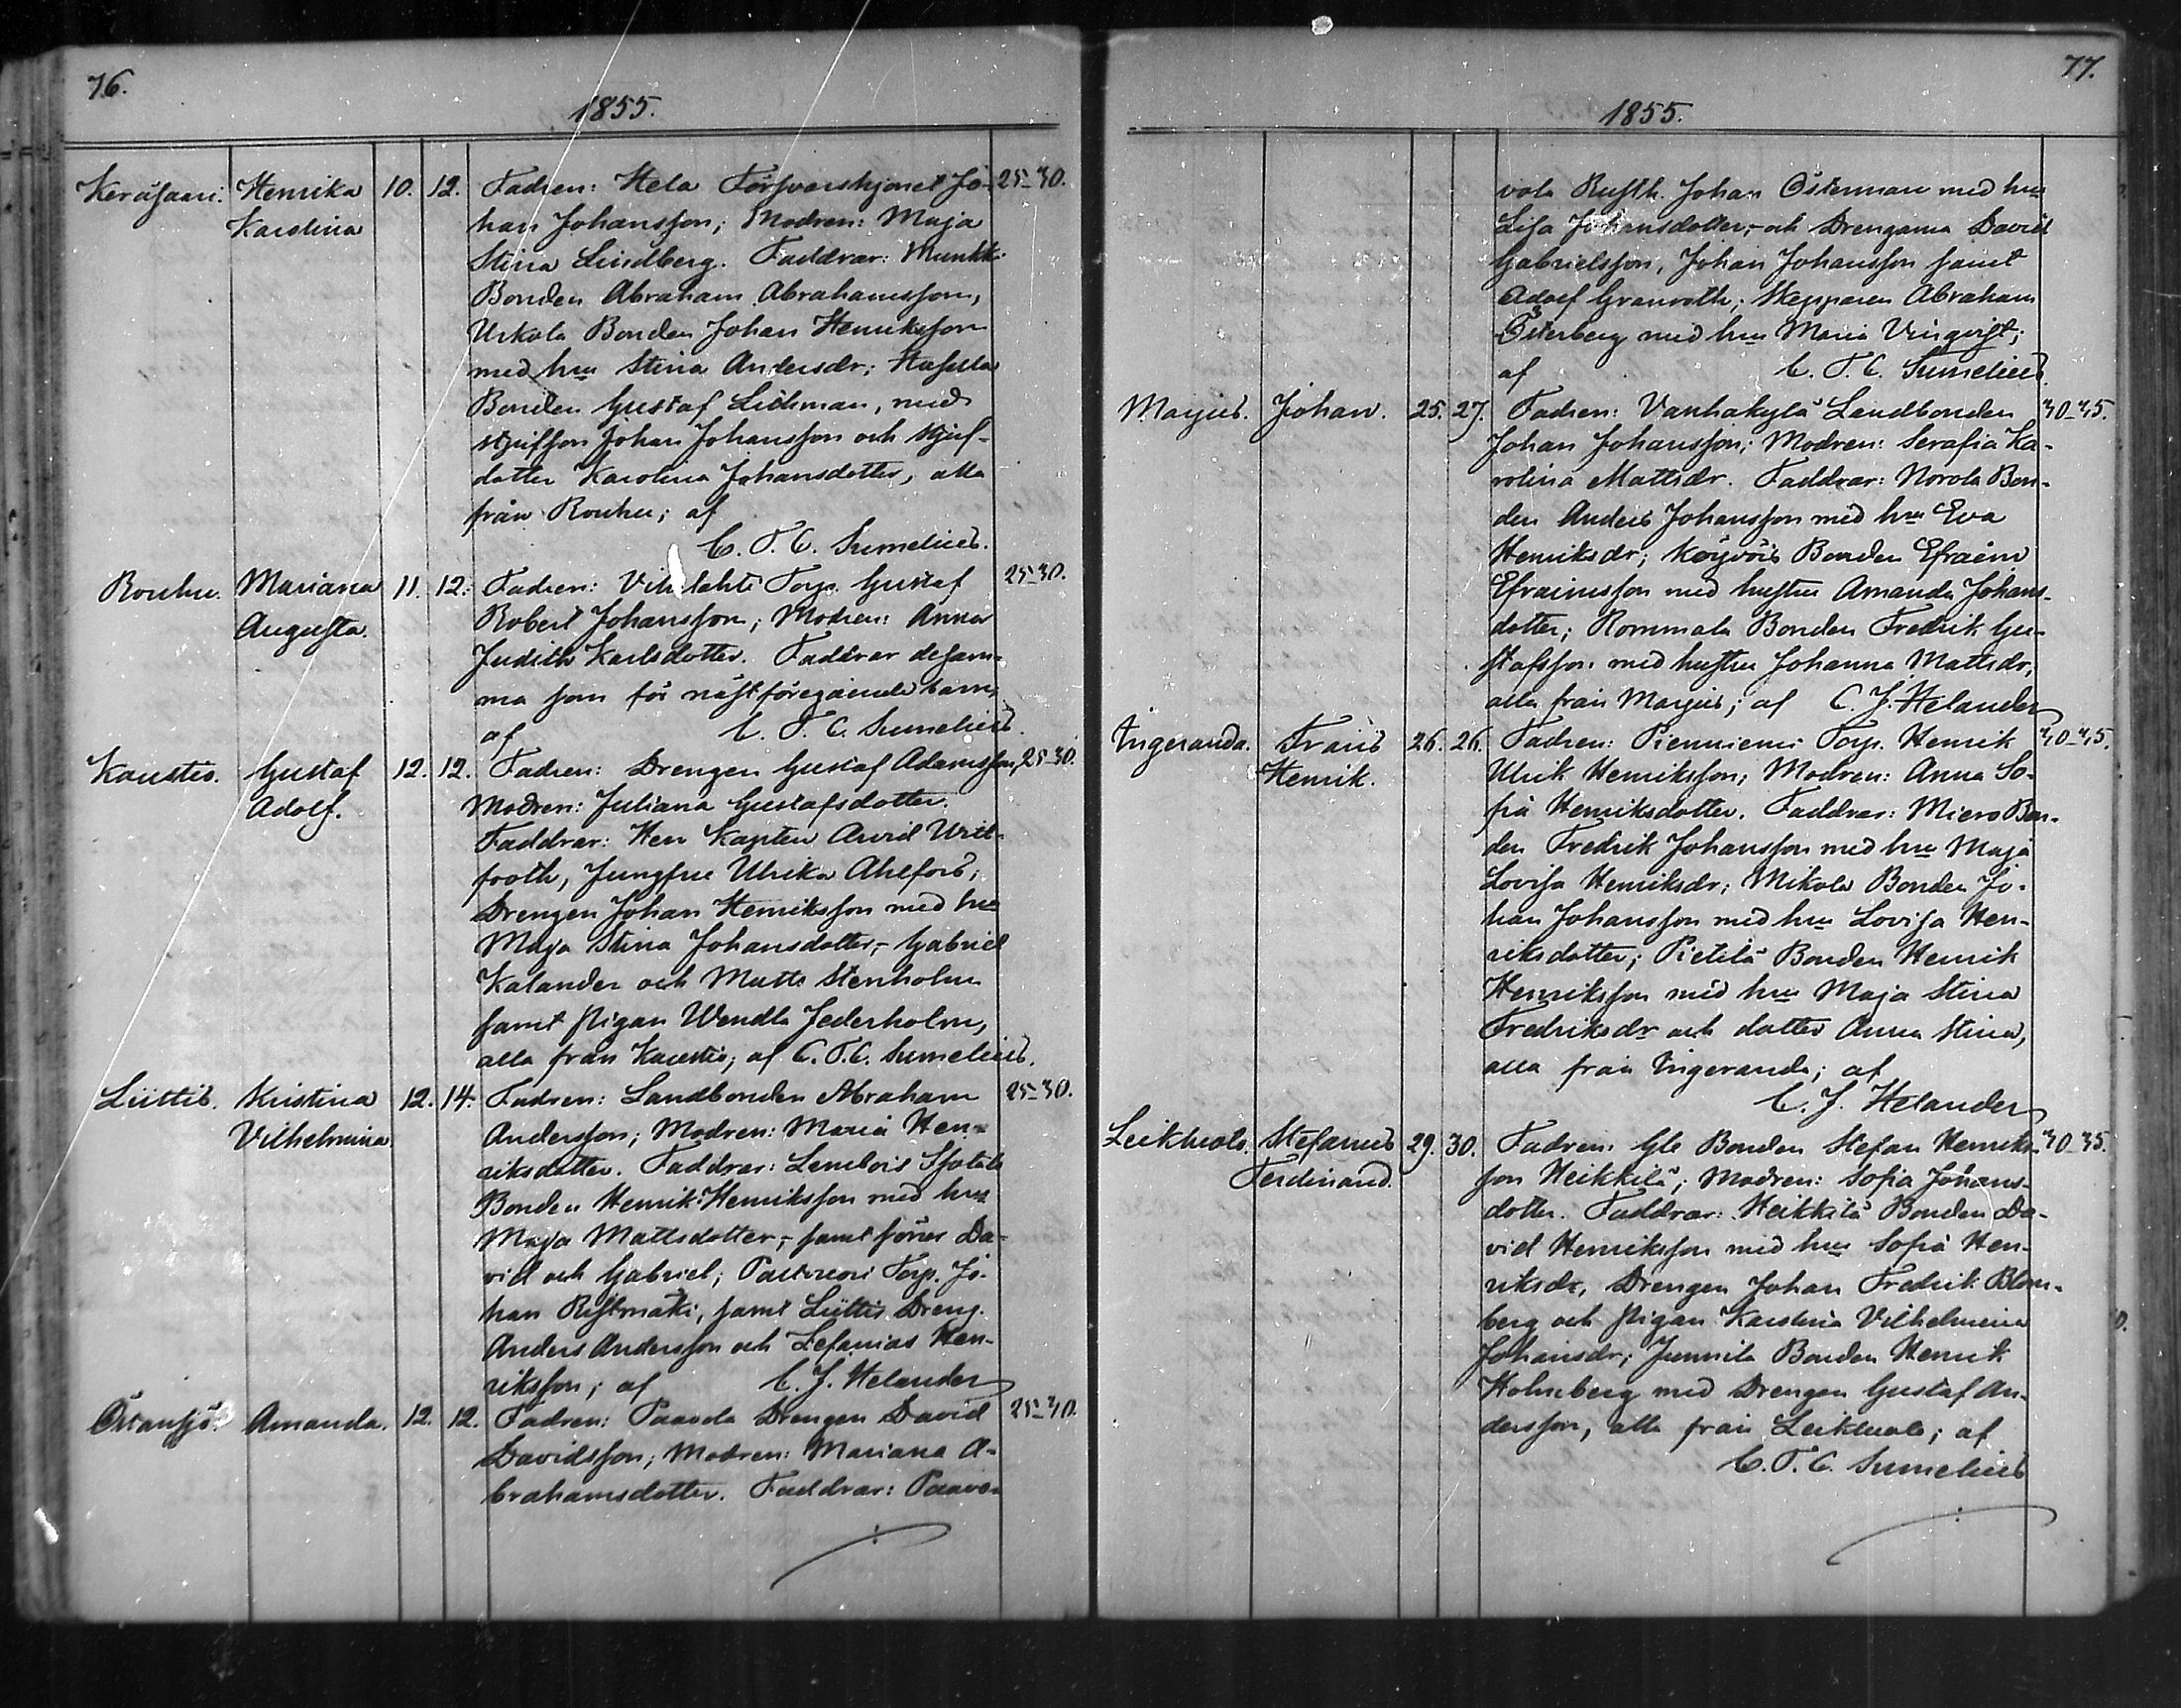 76.
1855.
Keräsaari. Henrika 10. 12. Fadren: Hela Försvarshjonet Jo- 25-30.
Karolina han Johansson; Modren: Maja
Stina Lindberg. Faddrar: Munkki
Bonden Abraham Abrahamsson,
Urkola Bonden Johan Henriksson
med hru Stina Andersdr;
Bonden Gustaf Lidman, med
styfson Johan Johansson och styf-
dotter Karolina Johansdotter, alla
från Rouhu; af
C. T. C. Sumelius.
Rouhu. Mariana 11. 12. Fadren: Torp. Gustaf 25-30.
Augusta. Robert Johansson; Modren: Anna
Judith Karlsdotter. Faddrar desam-
ma som för nästföregående barn;
af C. T. C. Sumelius.
Kaustio. Gustaf 12. 12. Fadren: Drengen Gustaf Adamsson, 25-30.
Adolf. Modren: Juliana Gustafsdotter.
Faddrar: Herr Kapten Arvid
Jungfru Ulrika Ahlfors;
Drengen Johan Henriksson med hru
Maja Stina Johansdotter,- Gabriel
Kalander och Matts Stenholm
samt pigan Wendla Jederholm,
alla från Kaustio; af C. T. C. Sumelius.
Liittis. Kristina 12. 14. Fadren: Landbonden Abraham 25-30.
Vilhelmina. Andersson; Modren: Maria Hen-
riksdotter. Faddrar: Lembois Isotalo
Bonden Henrik Henriksson med hru
Maja Mattsdotter,- samt söner Da-
vid och Gabriel; Torp. Jo-
han Ristimäki, samt Liittis Dreng.
Anders Andersson och Zefanias Hen-
riksson; af C. J. Helander
Östansjö. Amanda. 12. 12. Fadren: Paavola Drengen David 25-30.
Davidsson; Modren: Mariana A-
brahamsdotter. Faddrar: Paavo-
77.
1855.
vola Rusth. Johan Österman med hru
Lisa Johansdotter,- och Drengarna David
Gabrielsson, Johan Johansson samt
Adolf Granroth; Skepparen Abraham
Österberg med hru Maria Vinqvist;
af C. T. C. Sumelius.
Marjus. Johan. 25. 27. Fadren: Vanhakylä Landbonden 30-35.
Johan Johansson; Modren: Serafia Ka-
rolina Mattsdr. Faddrar: Norola Bon-
den Anders Johansson med hru Eva
Henriksdr; Köyvöis Bonden Efraim
Efraimsson med hustru Amanda Johans-
dotter; Rommala Bonden Fredrik Gu-
stafsson med hustru Johanna Mattsdr,
alla från Marjus; af C. J. Helander
Ingeranda. Frans 26. 26. Fadren: Pienniemi Torp. Henrik 30-35.
Henrik. Ulrik Henriksson; Modren: Anna So-
fia Henriksdotter. Faddrar: Miero Bon-
den Fredrik Johansson med hru Maja
Lovisa Henriksdr; Mikola Bonden Jo-
han Johansson med hru Lovisa Hen-
riksdotter; Pietilä Bonden Henrik
Henriksson med hru Maja Stina
Fredriksdr och dotter Anna Stina,
alla från Ingeranda; af
C. J. Helander
Leikluoto. Stefanus 29. 30. Fadren: Gle Bonden Stefan Henriks- 30-35.
Ferdinand. son Heikkilä; Modren: Sofia Johans-
dotter. Faddrar: Heikkilä Bonden Da-
vid Henriksson med hru Sofia Hen-
riksdr, Drengen Johan Fredrik Blom-
berg och pigan Karolina Vilhelmina
Johansdr; Junnila Bonden Henrik
Holmberg med Drengen Gustaf An-
dersson, alla från Leikluoto; af
C. T. C. Sumelius